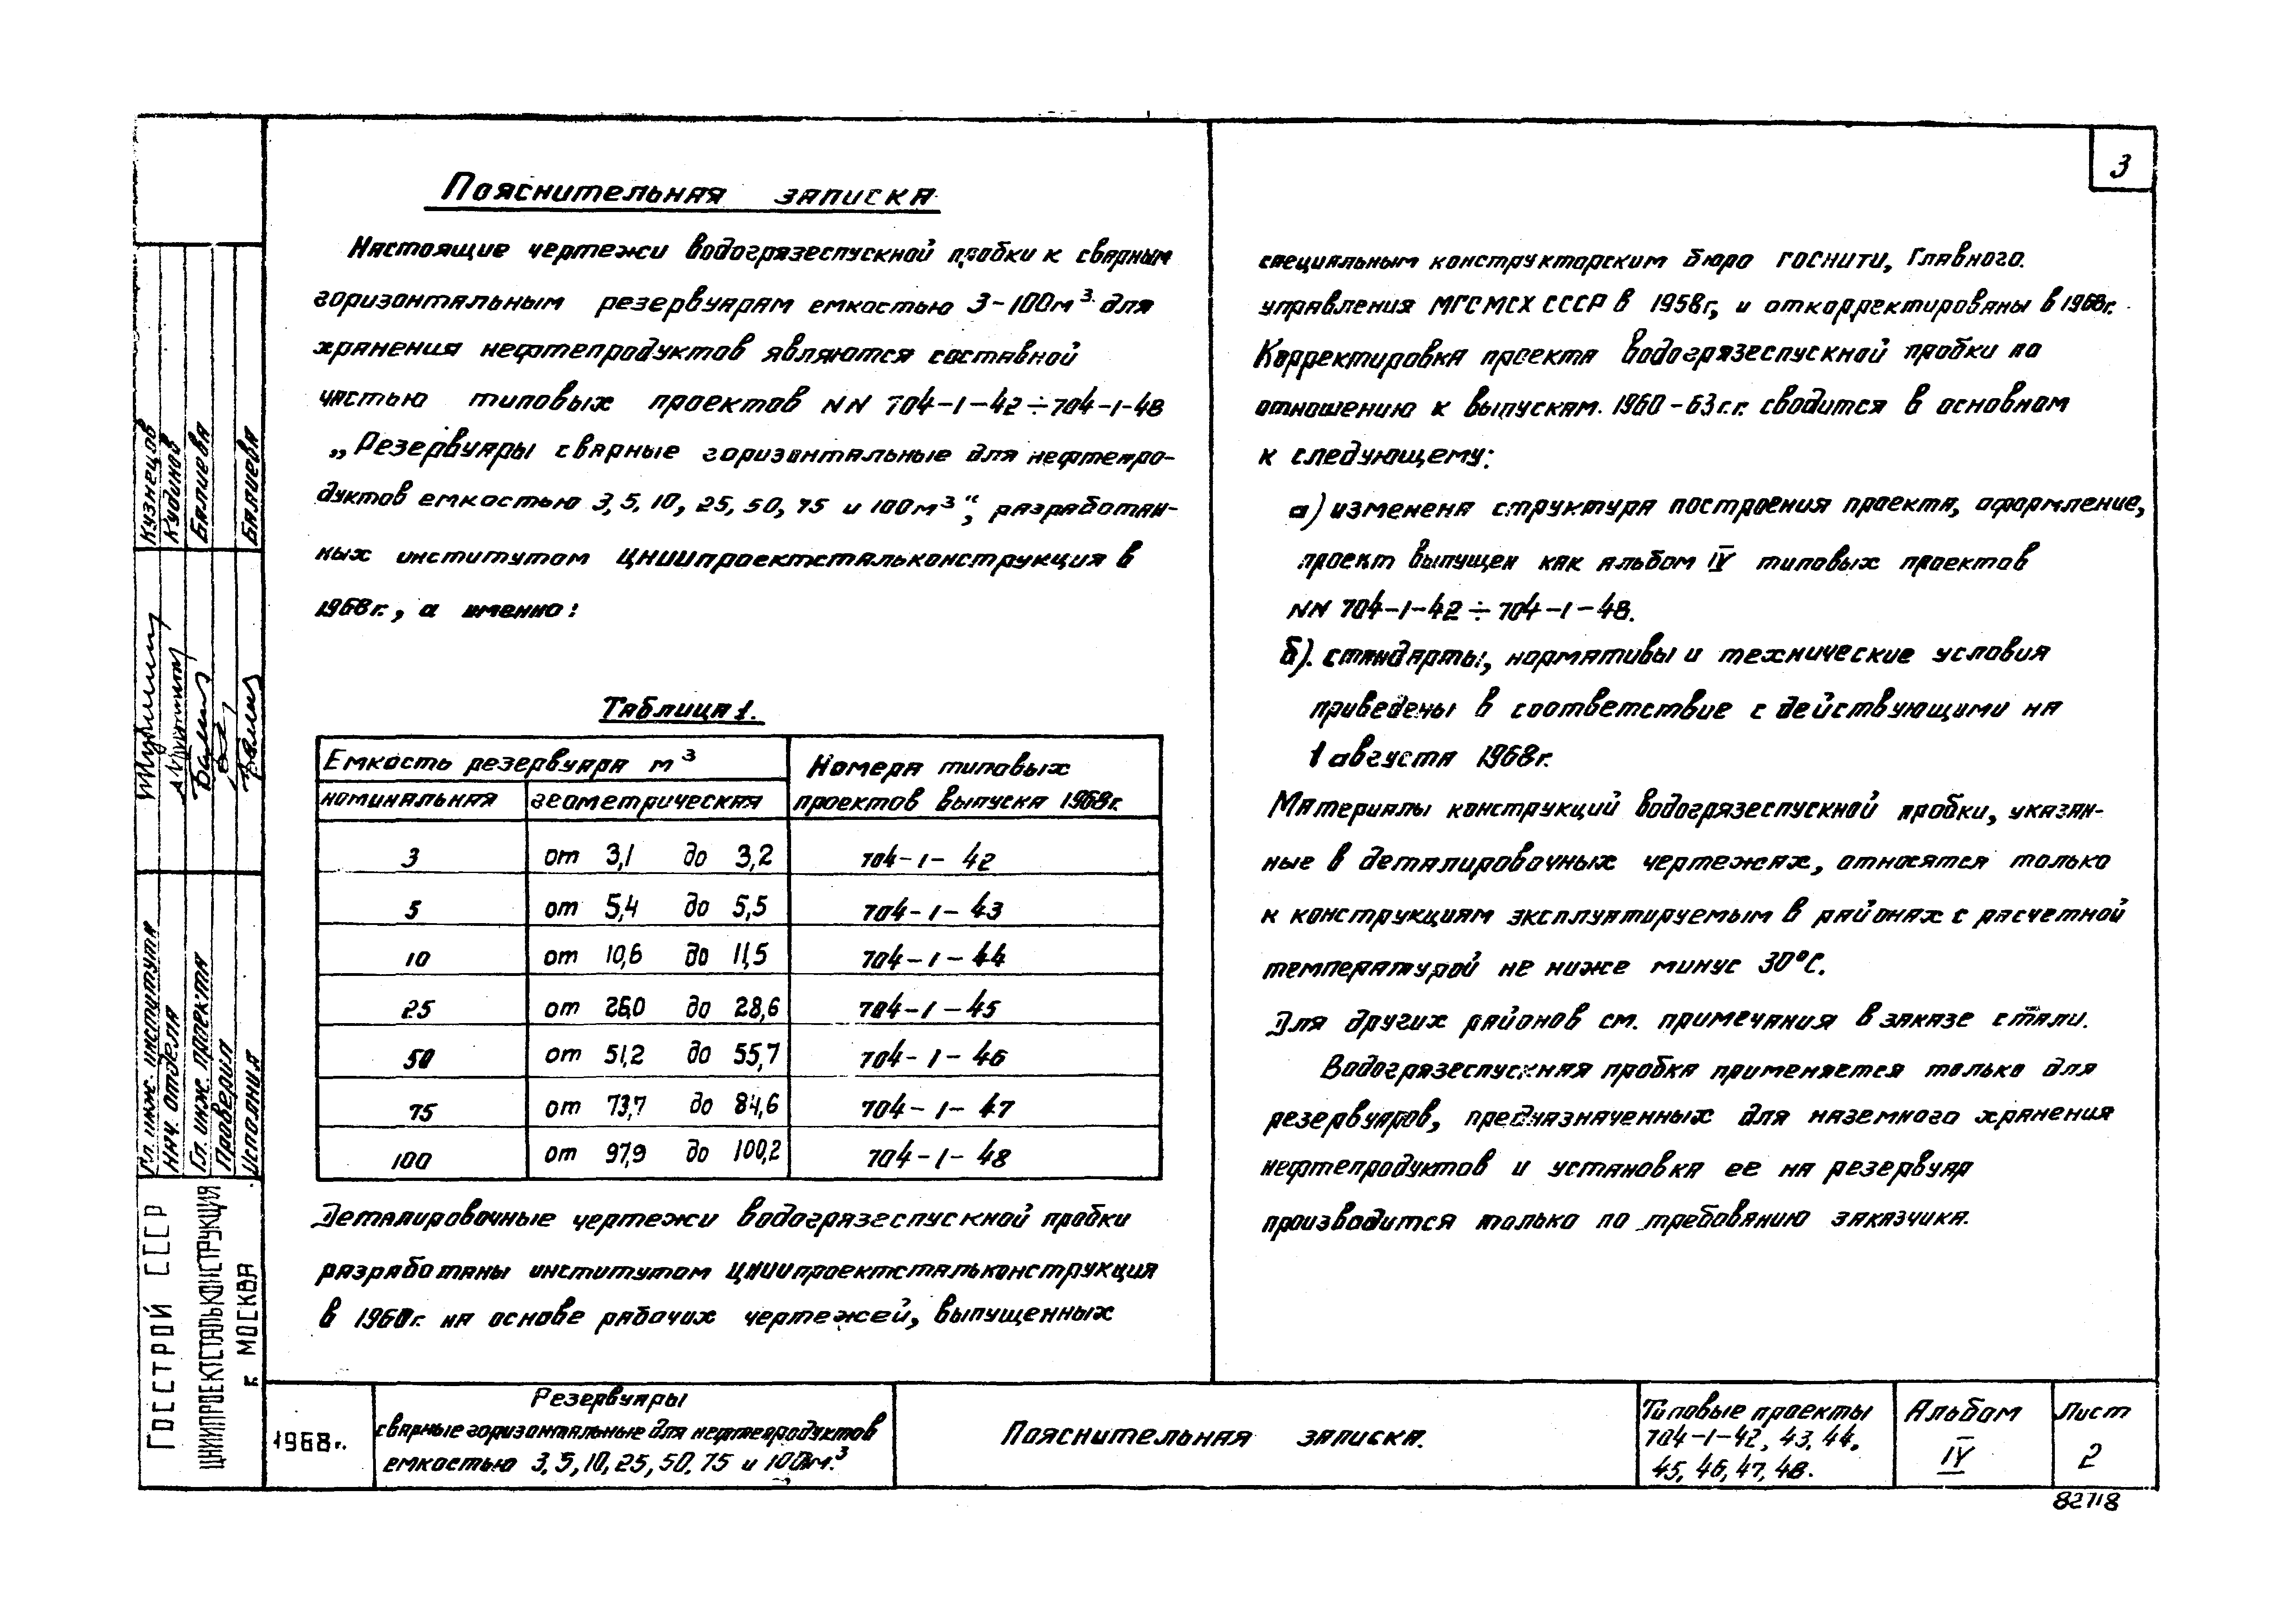 3
Пояснительная записка
Настоящие чертежи водогрязеспускной пробки к сварным
горизонтальным резервуарам емкостью 3-100м³ для
хранения нефтепродуктов являются составной
частью типовых проектов NN 704-1-42÷704-1-48
„Резервуары сварные горизонтальные для нефтепро-
дуктов емкостью 3, 5, 10, 25, 50, 75 и 100м³", разработан-
ных институтом ЦНИИпроектстальконструкция в
1968г., а именно:
Таблица 1.
Емкость резервуара м³
Номера типовых
проектов выпуска 1968г.
номинальная геометрическая
3 от 3,1 до 3,2 704-1-42
5 от 5,4 до 5,5 704-1-43
10 от 10,6 до 11,5 704-1-44
25 от 26,0 до 28,6 704-1-45
50 от 51,2 до 55,7 704-1-46
75 от 73,7 до 84,6 704-1-47
100 от 97,9 до 100,2 704-1-48
Деталировочные чертежи водогрязеспускной пробки
разработаны институтом ЦНИИпроектстальконструкция
в 1960г. на основе рабочих чертежей, выпущенных
специальным конструкторским бюро ГОСНИТИ, Главного.
управления МГСМСХ СССР в 1958г, и откорректированы в 1968г.
Корректировка проекта водогрязеспускной пробки по
отношению к выпускам. 1960-63г.г. сводится в основном
к следующему:
а) изменена структура построения проекта, оформление,
проект выпущен как альбом IV типовых проектов
NN 704-1-42÷704-1-48.
б). стандарты, нормативы и технические условия
приведены в соответствие с действующими на
1 августа 1968г.
Материалы конструкций водогрязеспускной пробки, указан-
ные в деталировочных чертежах, относятся только
к конструкциям эксплуатируемым в районах с расчетной
температурой не ниже минус 30°С.
Для других районов см. примечания в заказе стали.
Водогрязеспускная пробка применяется только для
резервуаров, предназначенных для наземного хранения
нефтепродуктов и установка ее на резервуар
производится только по требованию заказчика.
Гл. инж. института Кузнецов
Нач. отдела Кудинов
Гл. инж. проекта Балиева
Проверил
Исполнил Балиева
ГОССТРОЙ СССР
ЦНИИПРОЕКТСТАЛЬКОНСТРУКЦИЯ
г. МОСКВА
1968г.
Резервуары
сварные горизонтальные для нефтепродуктов
емкостью 3, 5, 10, 25, 50, 75 и 100м.³
Пояснительная записка.
Типовые проекты
704-1-42, 43, 44,
45, 46, 47, 48.
Альбом
IV
Лист
2
82718